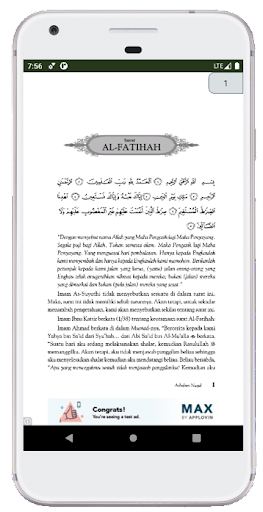 7:56
LTE
1
Surat
AL-FATIHAH
بِسْمِ اللَّهِ الرَّحْمَٰنِ الرَّحِيمِ الْحَمْدُ لِلَّهِ رَبِّ الْعَالَمِينَ الرَّحْمَٰنِ
الرَّحِيمِ مَالِكِ يَوْمِ الدِّينِ إِيَّاكَ نَعْبُدُ وَإِيَّاكَ نَسْتَعِينُ اهْدِنَا
الصِّرَاطَ الْمُسْتَقِيمَ صِرَاطَ الَّذِينَ أَنْعَمْتَ عَلَيْهِمْ غَيْرِ الْمَغْضُوبِ عَلَيْهِمْ وَلَا
الضَّالِّينَ
"Dengan menyebut nama Allah yang Maha Pengasih lagi Maha Penyayang.
Segala puji bagi Allah, Tuhan semesta alam. Maha Pengasih lagi Maha
Penyayang. Yang menguasai hari pembalasan. Hanya kepada Engkaulah
kami menyembah dan hanya kepada Engkaulah kami memohon. Berikanlah
petunjuk kepada kami jalan yang lurus, (yaitu) jalan orang-orang yang
Engkau telah anugerahkan nikmat kepada mereka; bukan (jalan) mereka
yang dimurkai dan bukan (pula jalan) mereka yang sesat."
Imam As-Suyuthi tidak menyebutkan sesuatu di dalam surat ini.
Maka, saya ini tidak memiliki sebab turunnya. Akan tetapi, untuk sekadar
menambah pengetahuan, kami akan menyebutkan sekilas tentang surat ini.
Imam Ibnu Katsir berkata (1/88) tentang keutamaan surat Al-Fatihah
Imam Ahmad berkata di dalam Musnad-nya, "Bercerita kepada kami
Yahya bin Sa'id dari Syu'bah,... dari Abi Sa'id bin Al-Mu'alla berkata,
"Suatu hari aku sedang melaksanakan shalat, kemudian Rasulullah
memanggilku. Akan tetapi, aku tidak menjawab panggilan beliau sehingga
aku menyelesaikan shalat kemudian aku mendatangi beliau. Beliau bersabda,
"Apa yang mencegahmu untuk tidak menjawab panggilanku? Kemudian aku
Asbabun Nuzul
1
Congrats!
You're seeing a test ad.
MAX
BY APPLOVIN